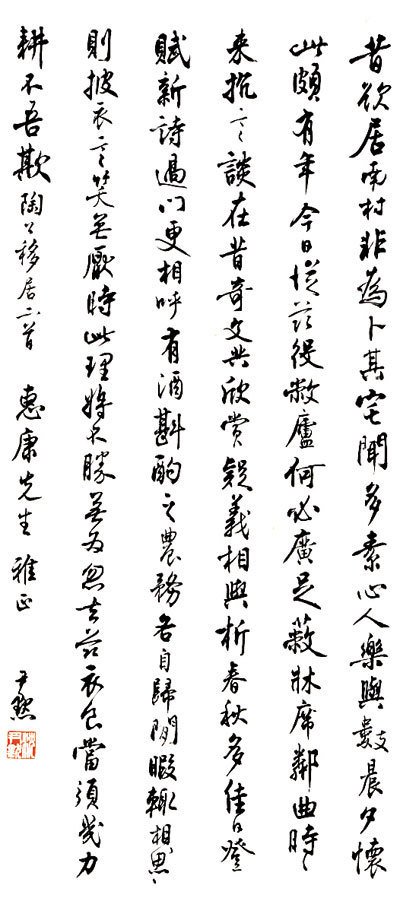 昔欲居南村非為卜其宅聞多素心人樂與數晨夕懷
此頗有年今日從茲役敝廬何必廣足蔽牀席鄰曲時〻
来抗言談在昔奇文共欣賞疑義相與析春秋多佳日登
賦新詩過門更相呼有酒斟酌之農務各自歸閒暇輒相思〻
則披衣言笑無厭時此理將不勝無為忽去茲衣食當須幾力
耕不吾欺陶公移居二首 惠康先生雅正 尹默